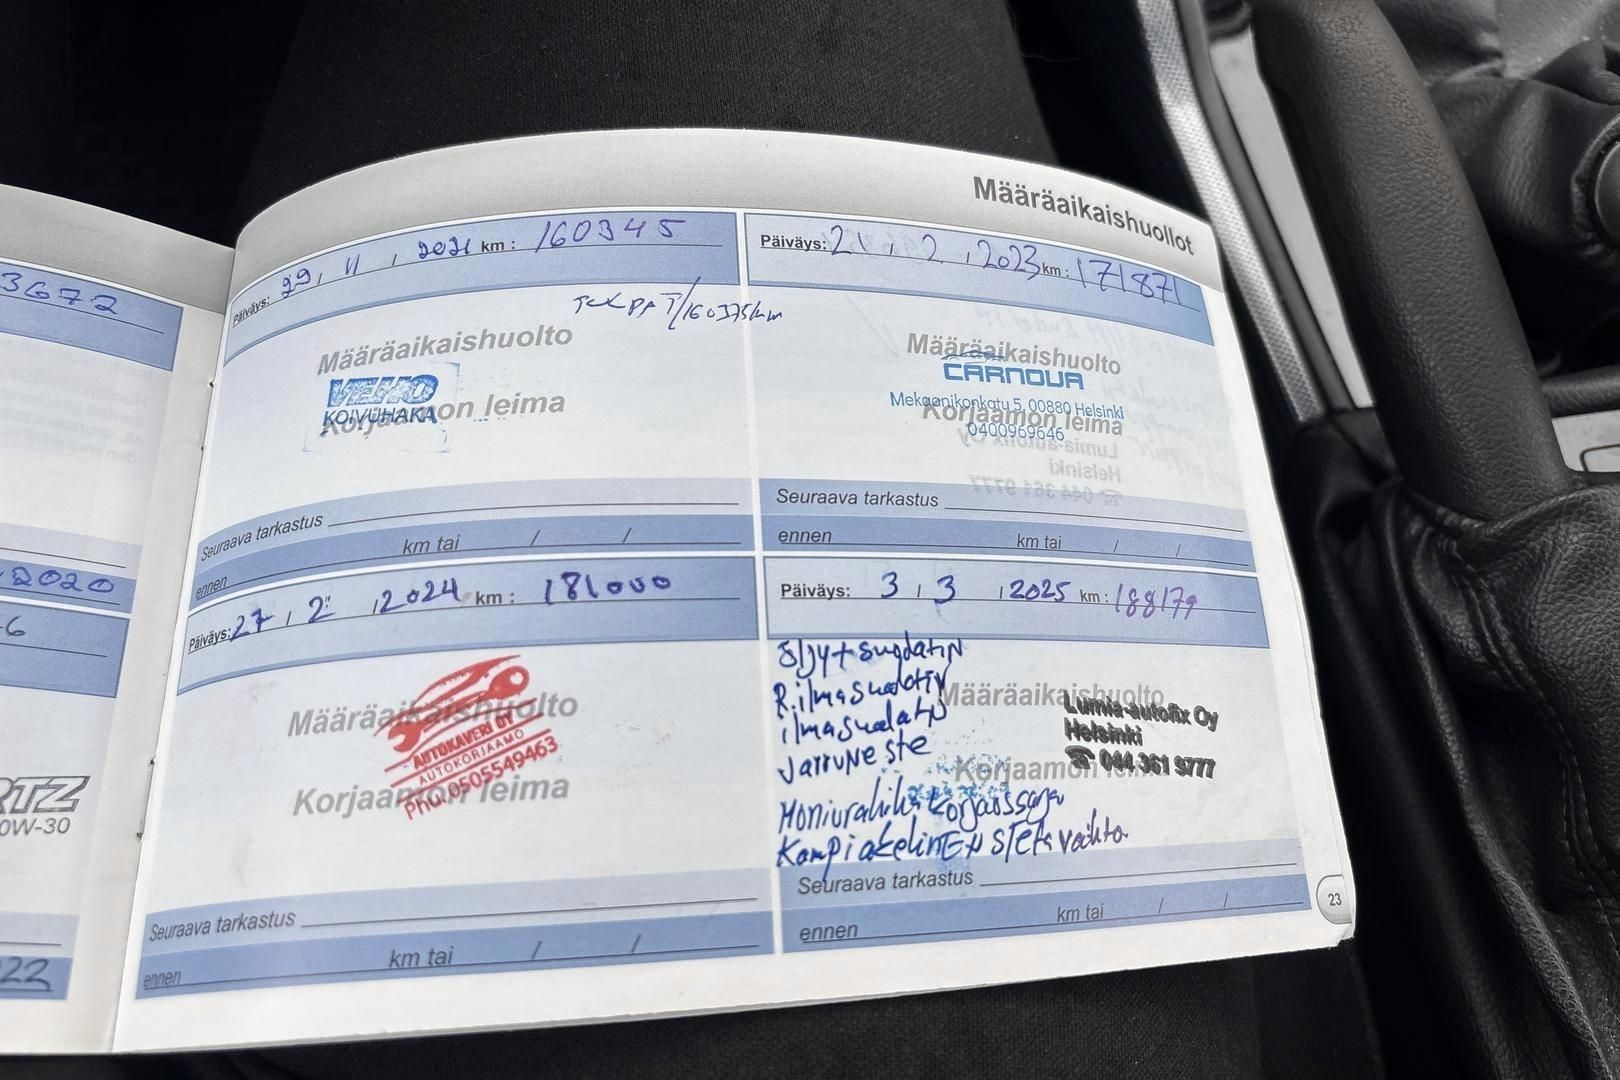 Määräaikaishuollot
3672
2020
-6
RTZ
0W-30
22
Päiväys: 29 / 11 / 2021 km: 160345
160375km
Määräaikaishuolto
VEHO
KOIVUHAKA
Korjaamon leima
Seuraava tarkastus
ennen km tai / /
Päiväys: 21 / 2 / 2023 km: 171871
Määräaikaishuolto
CARNOVA
Mekaanikonkatu 5, 00880 Helsinki
Korjaamon leima
0400969646
Seuraava tarkastus
ennen km tai / /
Päiväys: 27 / 2 / 2024 km: 181000
Määräaikaishuolto
AUTOKAVERI OY
AUTOKORJAAMO
Phu. 0505549463
Korjaamon leima
Seuraava tarkastus
ennen km tai / /
Päiväys: 3 / 3 / 2025 km: 188179
öljy+suodatin
R.ilmasuodatin
ilmasuodatin
Jarruneste
Moniurahihna korjaussarja
Kampiakelinen stefa vaihto.
Määräaikaishuolto
Lumia-autofix Oy
Helsinki
☎ 044 361 9777
Korjaamon leima
Seuraava tarkastus
ennen km tai / /
23